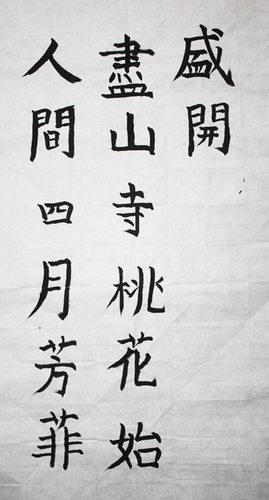 人間四月芳菲
盡山寺桃花始
盛開